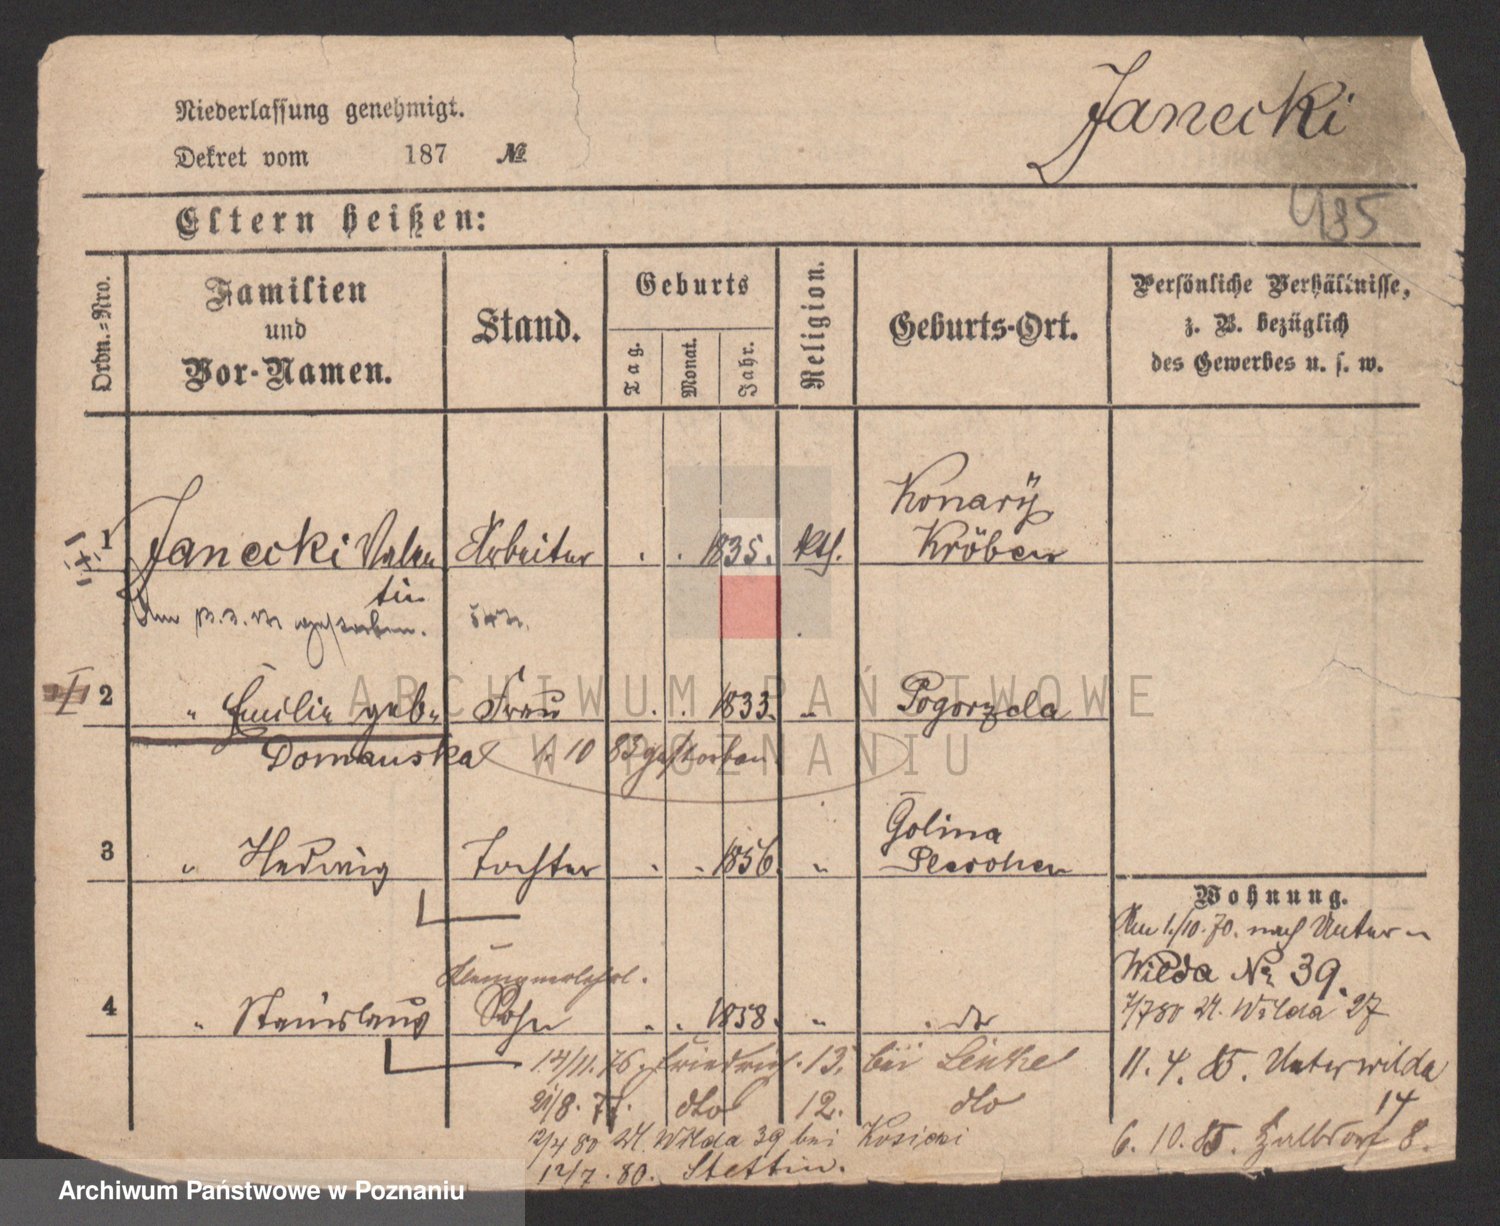 Niederlassung genehmigt.
Dekret vom 187 №
Janecki
485
Eltern heißen:
Ordn.-Nro.
Familien
und
Vor-Namen.
Stand.
Geburts
Tag.
Monat.
Jahr.
Religion.
Geburts-Ort.
Persönliche Verhältnisse,
z. B. bezüglich
des Gewerbes u. s. w.
1 Janecki Valen Arbeiter . . 1835. kth. Konary
Kröben
tin
gestorben.
2 " Emilie geb. Frau . . 1833. " Pogorzela
Domanska 10 83 gestorben
3 " Hedwig Tochter . . 1856. " Golina
Pleschen
4 " Stanislaus Sohn . . 1858. " do
14/11. 76. Friedrich. 13. bei Linke
21/8. 77. dto 12. dto
12/4 80 U. Wilda 39 bei Kosicki
12/7. 80. Stettin.
Wohnung.
Am 1./10. 70. nach Unter-
Wilda No 39.
7/7 80 U. Wilda 27
11. 4. 85. Unterwilda
14
6. 10. 85. 8.
ARCHIWUM PAŃSTWOWE
W POZNANIU
Archiwum Państwowe w Poznaniu